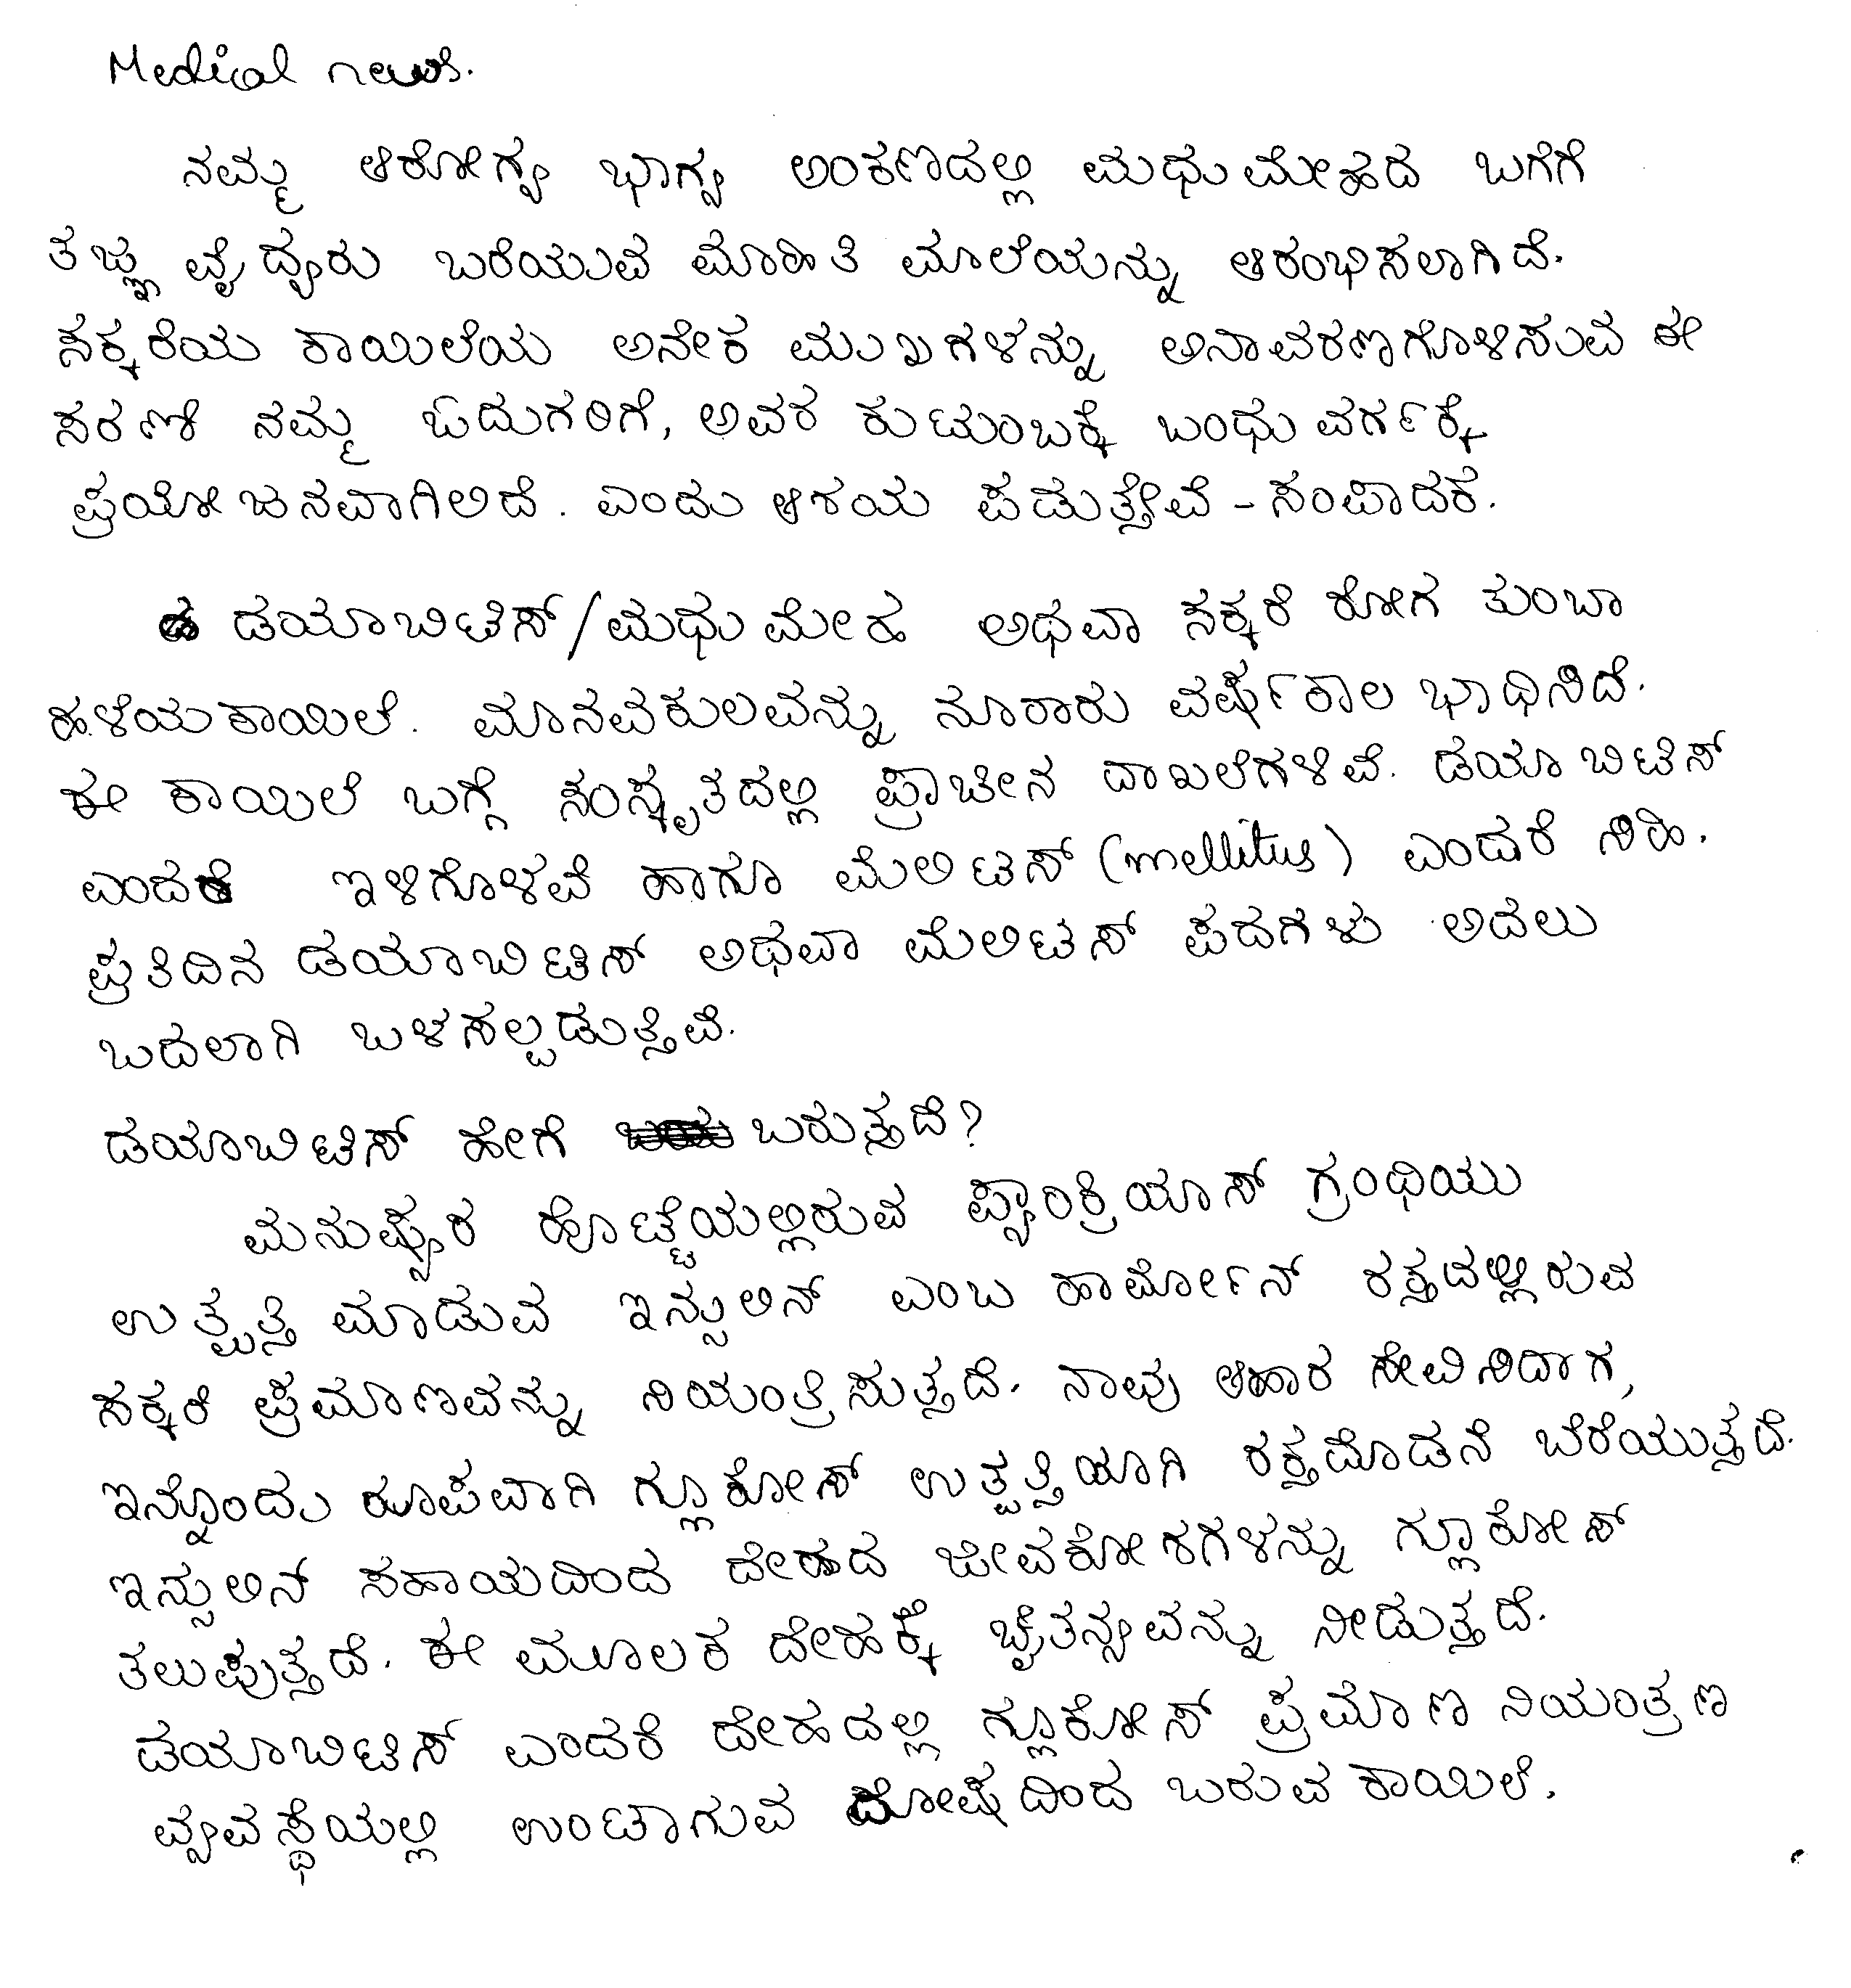 Medical news.
ನಮ್ಮ ಆರೋಗ್ಯ ಭಾಗ್ಯ ಅಂಕಣದಲ್ಲಿ ಮಧುಮೇಹದ ಬಗೆಗೆ
ತಜ್ಞ ವೈದ್ಯರು ಬರೆಯುವ ಮಾಹಿತಿ ಮಾಲೆಯನ್ನು ಆರಂಭಿಸಲಾಗಿದೆ.
ಸಕ್ಕರೆಯ ಕಾಯಿಲೆಯ ಅನೇಕ ಮುಖಗಳನ್ನು ಅನಾವರಣಗೊಳಿಸುವ ಈ
ಸರಣಿ ನಮ್ಮ ಓದುಗರಿಗೆ, ಅವರ ಕುಟುಂಬಕ್ಕೆ ಬಂಧು ವರ್ಗಕ್ಕೆ
ಪ್ರಯೋಜನವಾಗಲಿದೆ. ಎಂದು ಆಶಯ ಪಡುತ್ತೇವೆ - ಸಂಪಾದಕ.
ಡಯಾಬಿಟಿಸ್/ಮಧುಮೇಹ ಅಥವಾ ಸಕ್ಕರೆ ರೋಗ ತುಂಬಾ
ಹಳೆಯಕಾಯಿಲೆ. ಮಾನವಕುಲವನ್ನು ನೂರಾರು ವರ್ಷಕಾಲ ಭಾಧಿಸಿದೆ.
ಈ ಕಾಯಿಲೆ ಬಗ್ಗೆ ಸಂಸ್ಕೃತದಲ್ಲಿ ಪ್ರಾಚೀನ ದಾಖಲೆಗಳಿವೆ. ಡಯಾಬಿಟಿಸ್
ಎಂದರೆ ಇಳಿಗೊಳವೆ ಹಾಗೂ ಮೆಲಿಟಸ್ (mellitus) ಎಂದರೆ ಸಿಹಿ.
ಪ್ರತಿದಿನ ಡಯಾಬಿಟಿಸ್ ಅಥವಾ ಮೆಲಿಟಸ್ ಪದಗಳು ಅದಲು
ಬದಲಾಗಿ ಬಳಸಲ್ಪಡುತ್ತಿವೆ.
ಡಯಾಬಿಟಿಸ್ ಹೇಗೆ ಬರುತ್ತದೆ?
ಮನುಷ್ಯರ ಹೊಟ್ಟೆಯಲ್ಲಿರುವ ಪ್ಯಾಂಕ್ರಿಯಾಸ್ ಗ್ರಂಥಿಯು
ಉತ್ಪತ್ತಿ ಮಾಡುವ ಇನ್ಸುಲಿನ್ ಎಂಬ ಹಾರ್ಮೋನ್ ರಕ್ತದಲ್ಲಿರುವ
ಸಕ್ಕರೆ ಪ್ರಮಾಣವನ್ನು ನಿಯಂತ್ರಿಸುತ್ತದೆ. ನಾವು ಆಹಾರ ಸೇವಿಸಿದಾಗ,
ಇನ್ನೊಂದು ರೂಪವಾಗಿ ಗ್ಲೂಕೋಸ್ ಉತ್ಪತ್ತಿಯಾಗಿ ರಕ್ತದೊಡನೆ ಬೆರೆಯುತ್ತದೆ.
ಇನ್ಸುಲಿನ್ ಸಹಾಯದಿಂದ ದೇಹದ ಜೀವಕೋಶಗಳನ್ನು ಗ್ಲೂಕೋಸ್
ತಲುಪುತ್ತದೆ. ಈ ಮೂಲಕ ದೇಹಕ್ಕೆ ಚೈತನ್ಯವನ್ನು ನೀಡುತ್ತದೆ.
ಡಯಾಬಿಟಿಸ್ ಎಂದರೆ ದೇಹದಲ್ಲಿ ಗ್ಲೂಕೋಸ್ ಪ್ರಮಾಣ ನಿಯಂತ್ರಣ
ವ್ಯವಸ್ಥೆಯಲ್ಲಿ ಉಂಟಾಗುವ ದೋಷದಿಂದ ಬರುವ ಕಾಯಿಲೆ.